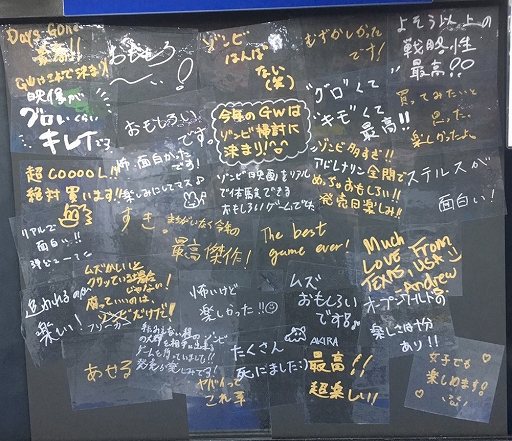 Days Gone
最高!!
GWはこれで決まり!
映像が
グロいくらい
キレイだろ
おもしろい!
ゾンビ
はんぱ
ない(笑)
むずかしかった
です!
よそう以上の
戦略性
最高!!
おもしろい
です。
今年のGWは
ゾンビ掃討に
決まり!
"グロ"くて
"キモ"くて
最高!!
買ってみたいと
思った。
楽しかったよ。
超COOOL!!
絶対買います!!
怖、面白かった
です!
楽しみにしてマス♪
ゾンビ映画をリアル
で体験できる
おもしろいゲームでした
ゾンビ多すぎ!!
アドレナリン全開で
めっちゃおもしろい!!
発売日楽しみ!!
ステルスが
面白い!
リアルで
面白い!!
すき。
まちがいなく今年の
最高傑作!
The best
game ever!
Much
LOVE From
TEXAS, USA
-Andrew
追われるのが
楽しい!
ムズかしいと
クリっている場合
じゃない!
腐っていいのは、
だけだ!
フリーカー
怖いけど
楽しかった!!
ムズ
おもしろい
です♪
AKIRA
オープンワールドの
楽しさは十分
あり!!
あせる
ゲームを待っていました!!
発売が楽しみです!
たくさん
死にました:)
ヤバイって
これ幸
最高!!
超楽しい!!
女子でも
楽しめます!